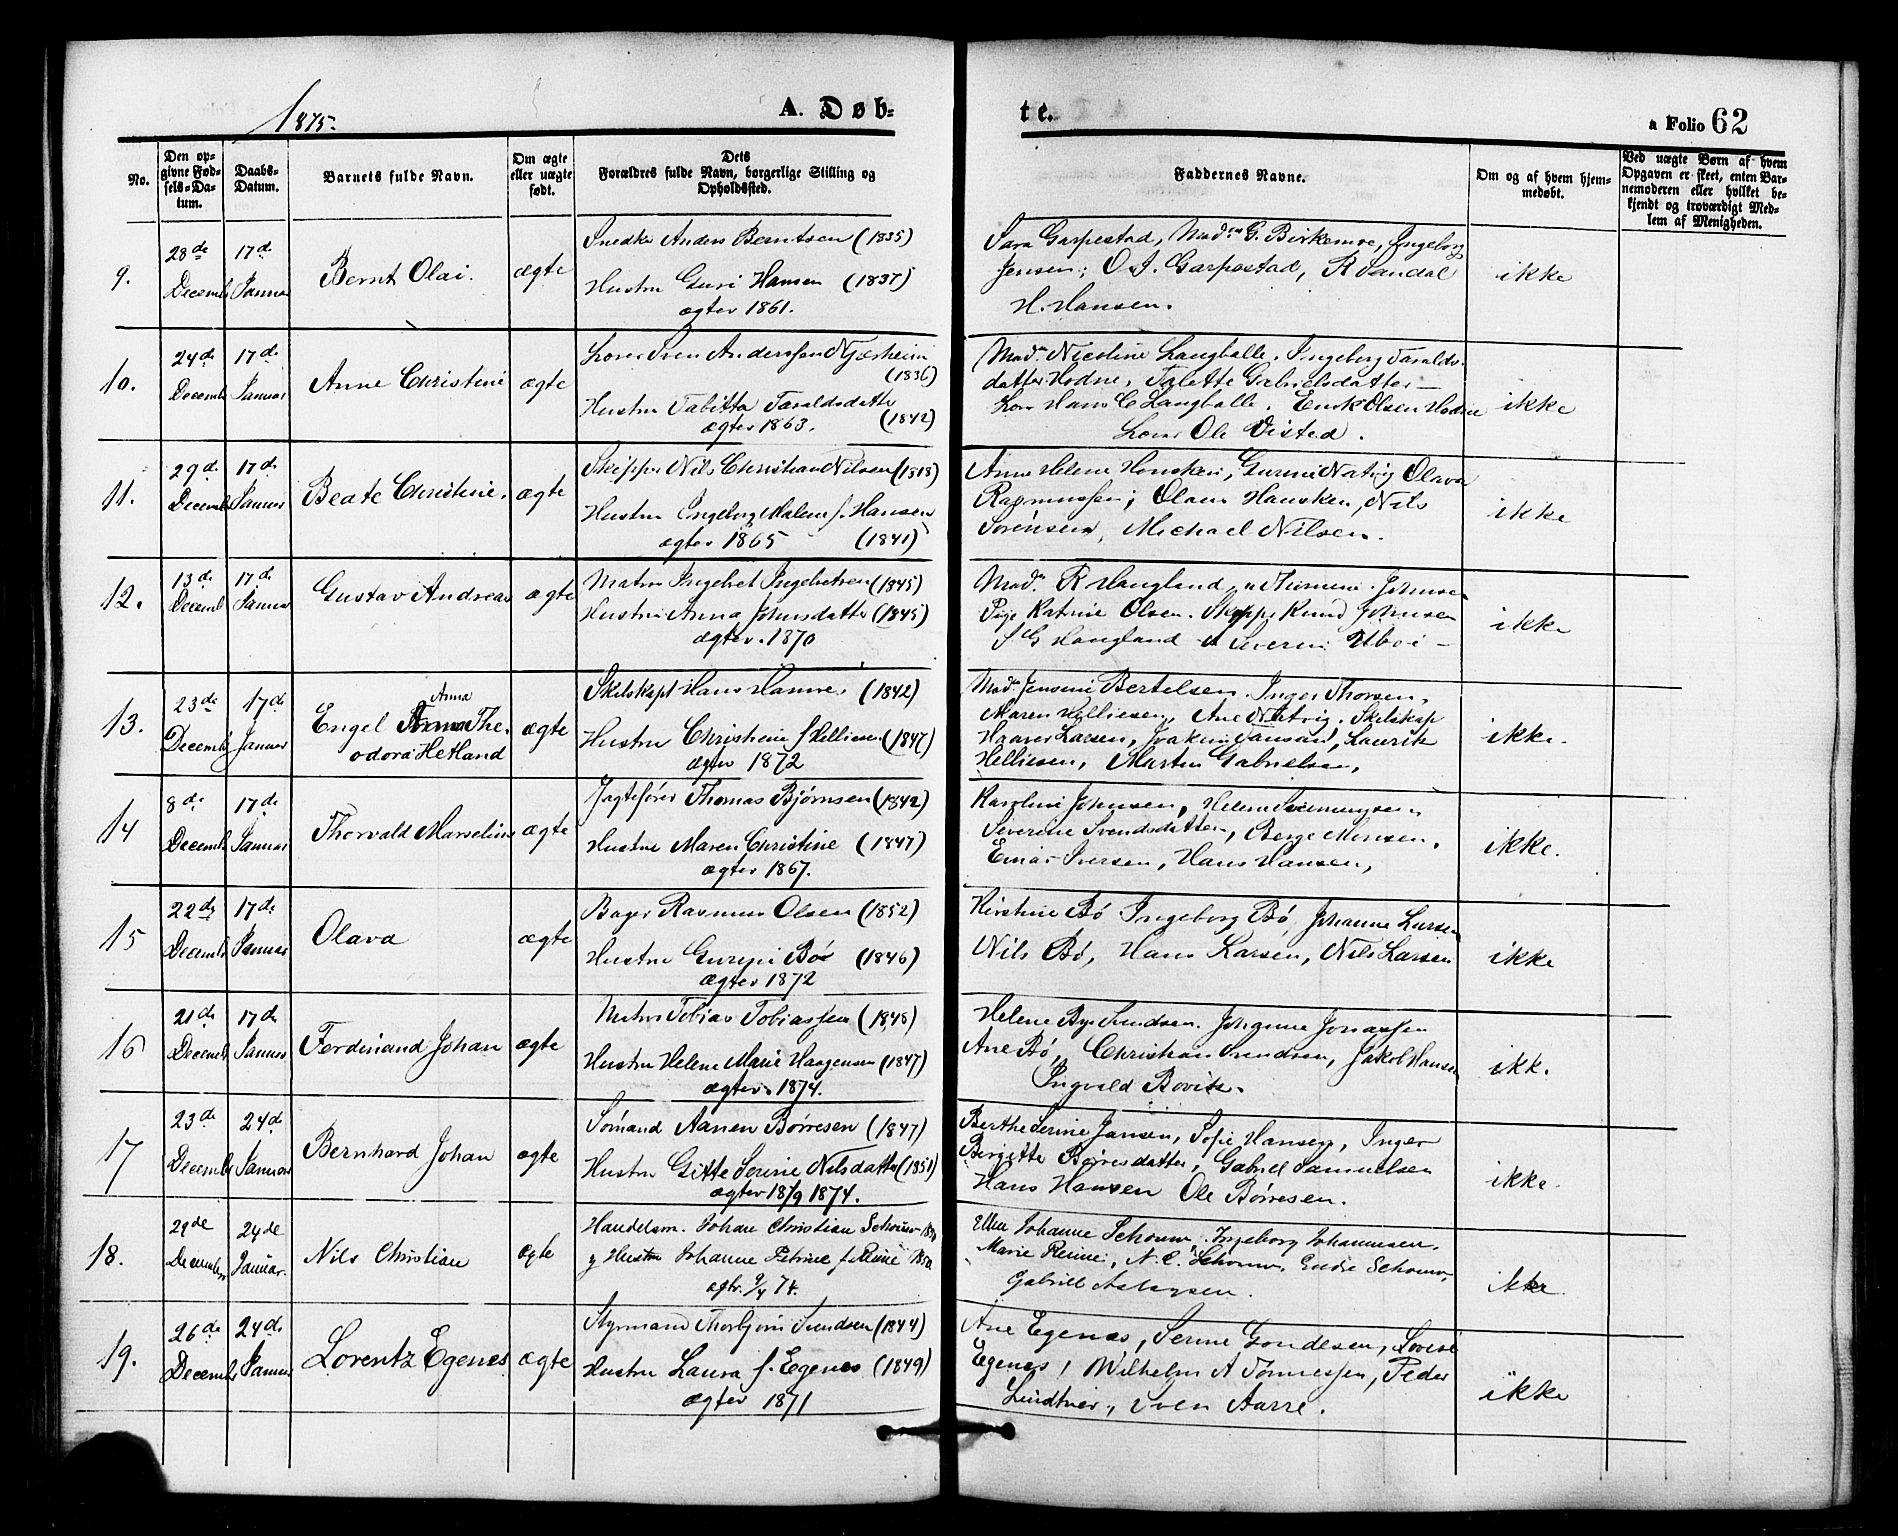 1875.
A. Døb-
te.
a Folio 62
No.
Den op-
givne Fød-
sels-Da-
tum.
Daabs-
Datum.
Barnets fulde Navn.
Om ægte
eller uægte
født.
Dets
Forældres fulde Navn, borgerlige Stilling og
Opholdssted.
Faddernes Navne.
Om og af hvem hjem-
medøbt.
Ved uægte Børn af hvem
Opgaven er skeet, enten Bar-
nemoderen eller hvilket be-
kjendt og troværdigt Med-
lem af Menigheden.
9.
28de
Decemb
17de
Januar
Bernt Olai.
ægte
Snedker Anders Berntsen (1835)
Hustru Guri Hansen (1837)
ægtev 1861.
Sara Garpestad, Madm G. Birkemoe, Ingeborg
Jensen; O. J. Garpestad, R Sandal
H. Hansen.
ikke
10.
24de
Decemb
17de
Januar
Anne Christine
ægte
Sven Anderssen Njærheim
(1836)
Hustru Tabitta Taraldsdatter
ægtev 1863. (1842)
Madm Nicoline Langballe. Ingeborg Taralds-
datter Hodne, Talette Gabrielsdatter -
Hans C Langballe. Enok Olsen Hodne
Ole Visted.
ikke
11.
29de
Decemb
17de
Januar
Beate Christine.
ægte
Skipper Nils Christian Nilsen (1818)
Hustru Engeborg Malene f. Hansen
ægtev 1865 (1841)
Anne Helene Hansken, Gurine Natvig Olava
Rasmussen; Olaus Hansken, Nils
Sørensen, Michael Nilsen.
ikke
12.
13de
Decemb
17de
Januar
Gustav Andreas
ægte
Matros Ingebret Ingebretsen (1845)
Hustru Anna Johnsdatter (1845)
ægtev. 1870
Madm R Haugland, Johnsen
Pige Katrine Olsen. Skipper Knud Johnsen
S G Haugland Severin
ikke
13.
23de
Decemb
17de
Januar
Anna
Engel The-
odora Hetland
ægte
Skilskapt Hans (1842)
Hustru Christine f Helliesen (1847)
ægtev 1872
Madm Jensine Bertelsen. Inger Thorsen,
Maren Helliesen, Ane Natvig. Skilskap
Haaver Larsen, Joakim Jansen, Laurits
Helliesen, Martin Gabrielsen,
ikke.
14
8de
Decemb
17de
Januar
Thorvald Marselius
ægte
Jagtefører Thomas Bjørnsen (1842)
Hustru Maren Christine (1847)
ægtev 1867.
Karoline Johnsen, Helene
Severine Svendsdatter, Berge Monsen.
Einar Iversen, Hans Hansen,
ikke.
15
22de
Decemb
17de
Januar
Olava
ægte
Bager Rasmus Olsen (1852)
Hustru Bø (1846)
ægtev 1872
Kirstine Bø Ingeborg Bø, Johanne Larsen
Nils Bø, Hans Larsen, Nils Larsen
ikke
16
21de
Decemb
17de
Januar
Ferdinand Johan
ægte
Tobias Tobiassen (1848)
Hustru Helene Marie Haagensen (1847)
ægtev 1874.
Helene Svendsen. Johanne Jonassen
Ane Bø, Christian Svendsen, Jakob Hansen
Ingvald Bovik.
ikk.
17
23de
Decemb
24de
Januar
Bernhard Johan
ægte
Sømand Aanen Børresen (1847)
Hustru Gitte Serine Nilsdatter (1851)
ægtev 18/9 1874.
Berthe Serine Jansen, Sofie Hansen, Inger
Birgitte Børresdatter, Gabriel Samuelsen
Hans Hansen Ole Børresen.
ikke.
18.
29de
December
24de
Januar.
Nils Christian
ægte
Handelsm. Johan Christian Schouw
g Hustru Johanne Petrine f. Reine 1850
ægtv. 9/4 74.
Johanne Schouw. Ingeborg Johannesen.
Marie Reine, N. C. Schouw, Endre Schouw,
Gabriel Aslagsen.
ikke.
19.
26de
Decemb
24de
Januar
Lorentz Egenes
ægte
Styrmand Thorbjørn Svendsen (1844)
Hustru Laura f. Egenes (1849)
ægtev 1871
Ane Egenæs, Serine Gondesen, Lovise
Egenes, Wilhelm A Tønnessen, Peder
Lindtner, Sven Aarre.
ikke